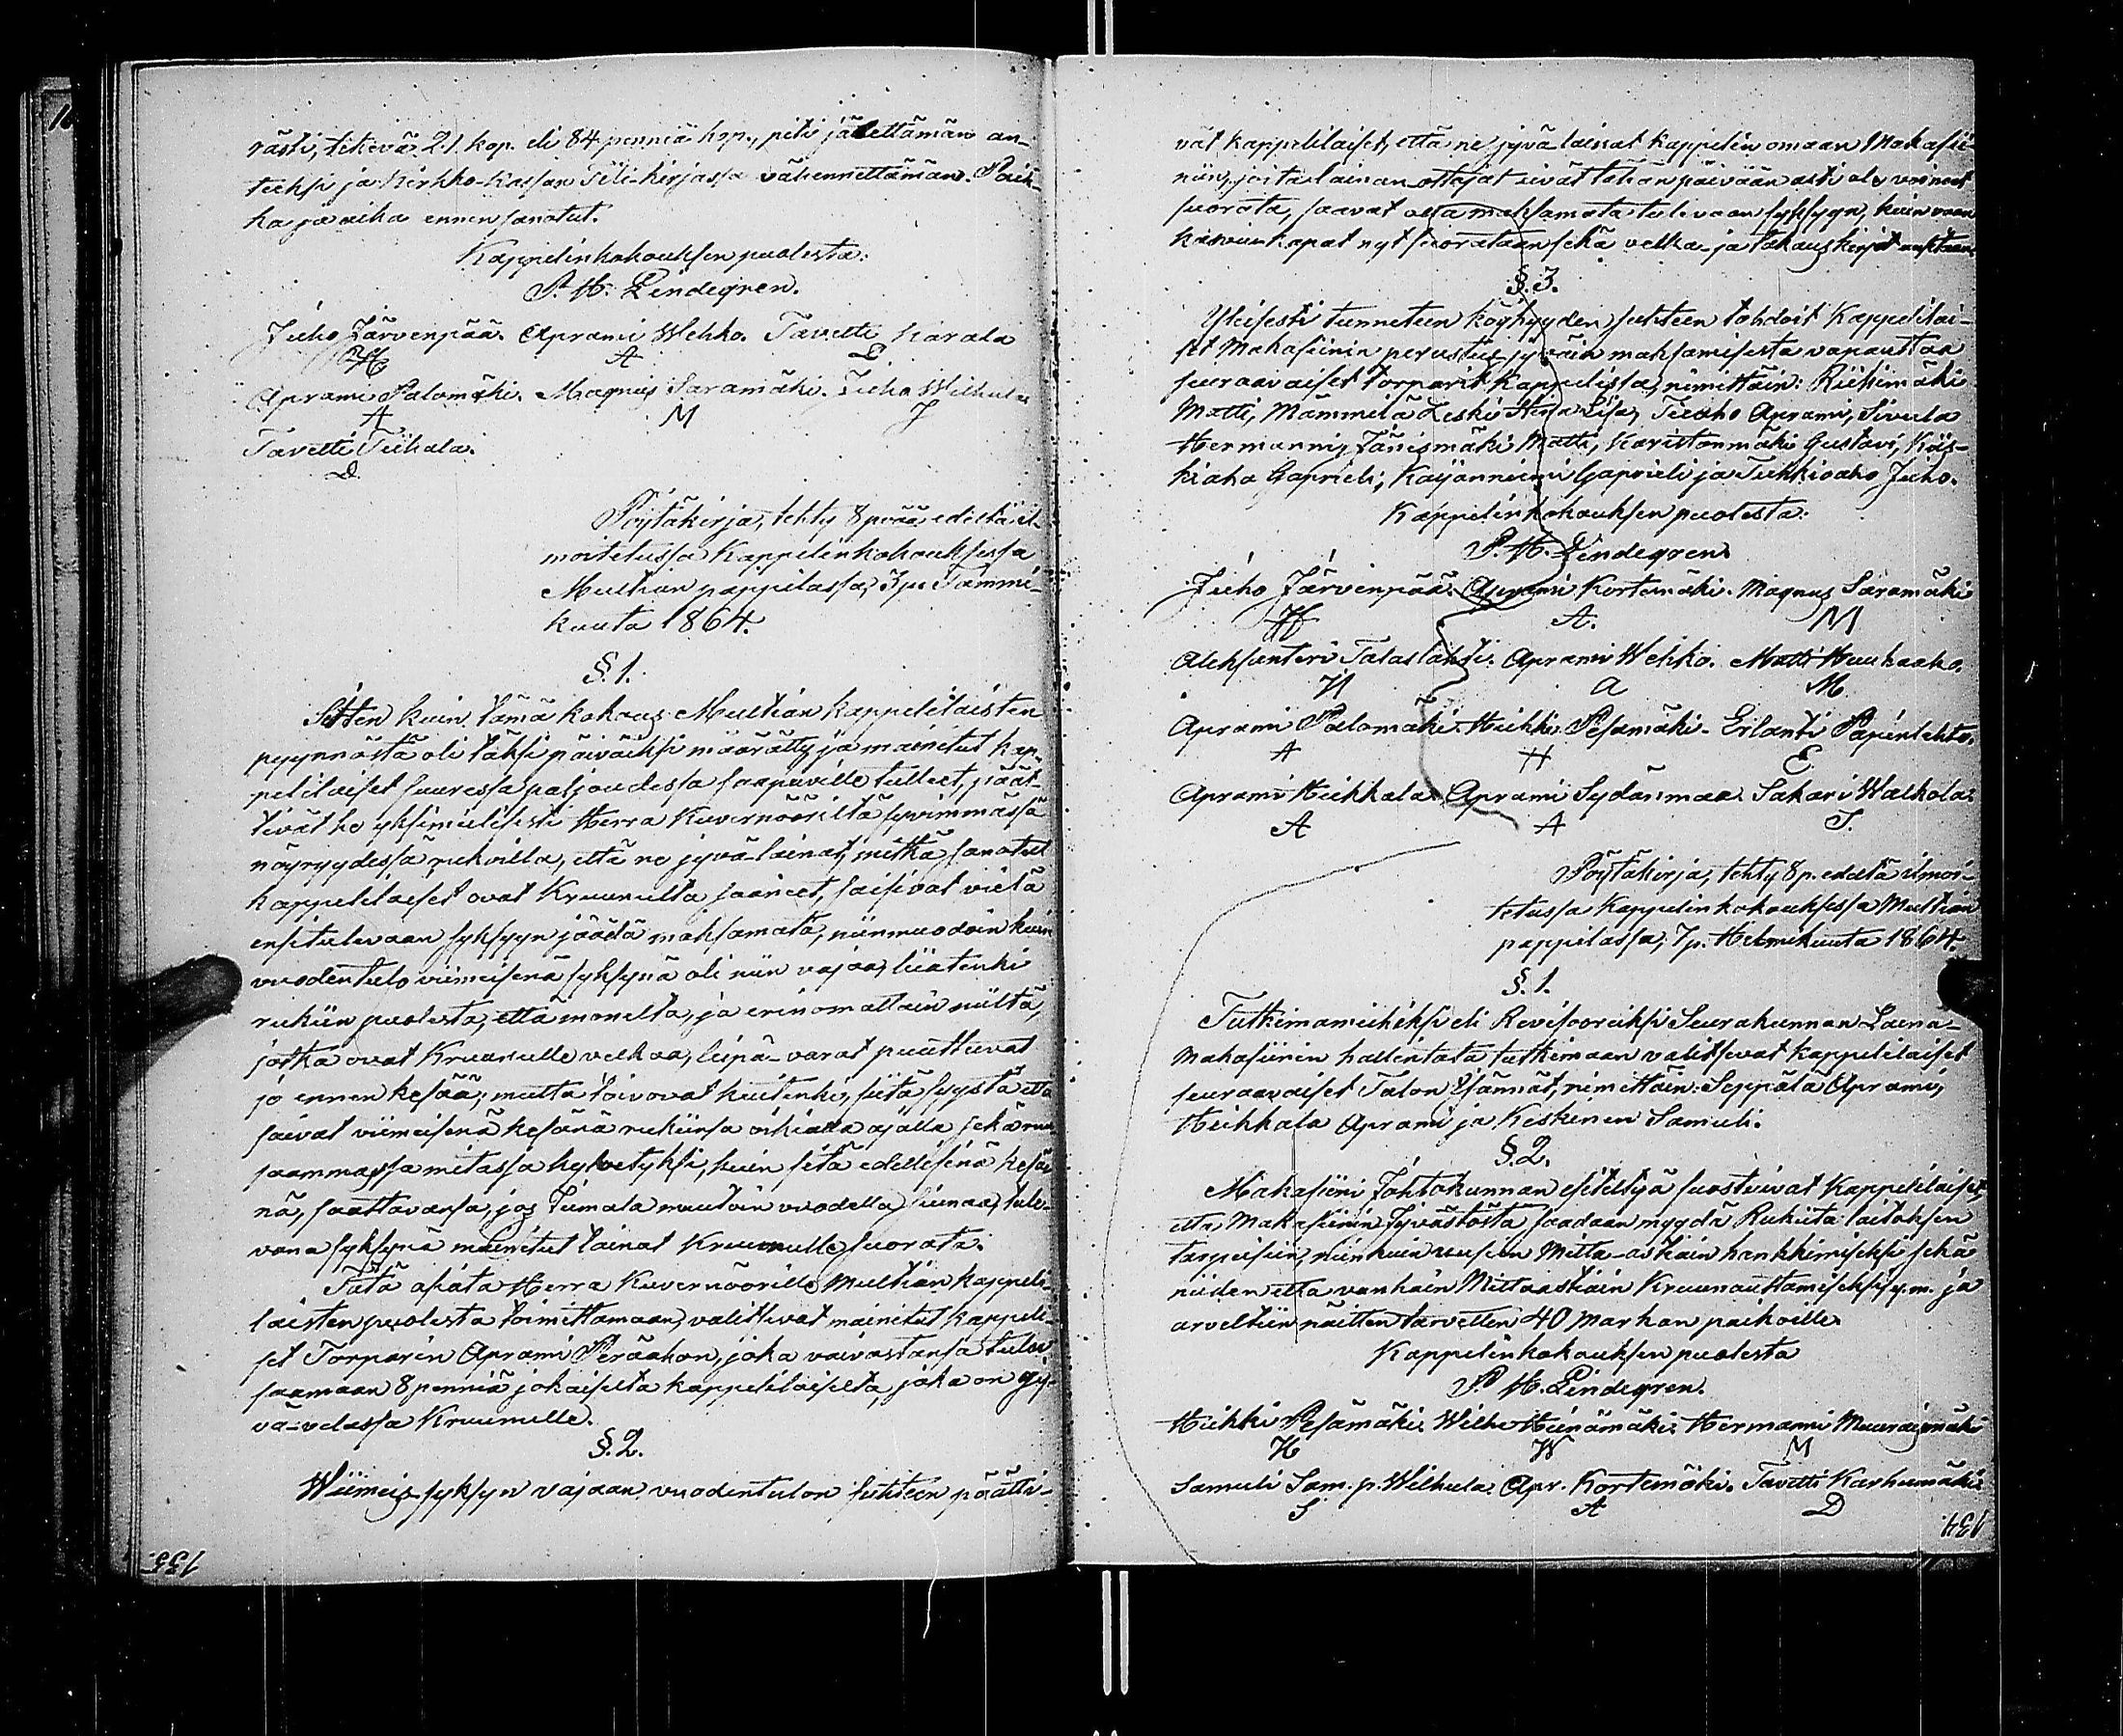 rästi, tekevä 21 kop. eli 84 penniä hop., piti jätettämän an-
teeksi ja Kirkko-Kassan Tili-kirjassa vähennettämän. Paik-
ka ja aika ennen sanotut.
Kappelinkokouksen puolesta:
P. H. Lindegren.
Juho Järvenpää. Aprami Wehko. Tavetti Karala
A
Aprami Palomäki. Magnus Saramäki. Juho Wilkula
A M J
Tavetti Tiihala.
D
Pöytäkirja, tehty 8 pvää edeltä il-
moitetussa Kappelinkokouksessa
Multian pappilassa, 3 p. Tammi-
kuuta 1864.
§. 1.
Sitten kuin tämä kokous Multian kappelilaisten
pyynnöstä oli täksi päiväksi määrätty ja mainitut kap-
pelilaiset suuressa paljoudessa saapuville tulleet, päät-
tivät he yksimielisesti Herra Kuvernööriltä syvimmässä
nöyryydessä rukoilla, että ne jyvä-lainat, mitkä sanotut
kappelilaiset ovat Kruunulta saaneet, saisivat vielä
ensitulevaan syksyyn jäädä maksamata, niinmuodoin kuin
vuodentulo viimeisenä syksynä oli niin vajaa, liiatenki
rukiin puolesta, että monelta, ja erinomattain niiltä,
jotka ovat Kruunulle velkaa, leipä-varat puuttuvat
jo ennen kesää; mutta toivovat kuitenki, siitä syystä että
saivat viimeisenä kesänä rukiinsa oikialla ajalla sekä run-
saammassa mitassa kylvetyksi, kuin sitä edellisenä kesä-
nä, saattavansa, jos Jumala muutoin vuodella siunaa, tule-
vana syksynä mainitut lainat Kruunulle suorata.
Tätä asiata Herra Kuvernöörille Multian kappeli-
laisten puolesta toimittamaan, valittivat mainitut kappeli-
set Torparin Aprami Peräahon, joka vaivastansa tulee
saamaan 8 penniä jokaiselta kappelilaiselta, joka on jy-
vä-velassa Kruunulle.
§. 2.
Wiimeis-syksyn vajaan vuodentulon suhteen päätti-
133.
vät kappelilaiset, että ne jyvälainat kappelin omaan Makasii-
niin, joita lainan-ottajat eivät tähän päivään asti ole voineet
suorata, saavat olla maksamata tulevaan syksyyn, kuin vaan
kasvuu kapat nyt suorataan sekä velka- ja takauskirjat
§. 3.
Yleisesti tunnetun köyhyyden suhteen tahdoit Kappelilai-
set Makasiinin perustus-jyväin maksamisesta vapauttaa
seuraavaiset torparit Kappelissa, nimittäin: Riihimäki
Matti, Mämmelä Leski Stina Lisa, Tiiaho Aprami, Sivula
Hermanni, Jänismäki Matti, Karistonmäki Gustavi, Käs-
kiaho Gaprieli, Kaijanniemi Gaprieli ja Tuhkioaho Juho.
Kappelinkokouksen puolesta:
P. H. Lindegren
Juho Järvenpää. Aprami Kortemäki. Magnus Saramäki
A. M
Aleksanteri Talaslahti. Aprami Wehko. Matti Huuhaaho.
A M
Aprami Palomäki. Heikki Pesämäki. Erlanti Papinlehto.
A H E
Aprami Heikkala. Aprami Sydänmaa. Sakari Waskola.
A A S.
Pöytäkirja, tehty 8 p. edeltä ilmoi-
tetussa Kappelinkokouksessa Multian
pappilassa, 7 p. Helmikuuta 1864.
§. 1.
Tutkimamiehiksi eli Revisooreiksi Seurakunnan Laina-
Makasiinin hallintata tutkimaan valitsevat kappelilaiset
seuraavaiset Talon Isännät, nimittäin: Seppälä Aprami,
Heikkala Aprami ja Keskinen Samuli.
§. 2.
Makasiini Johtokunnan esiteltyä suostuivat Kappelilaiset,
että Makasiinin Jyvästöstä saadaan myydä Rukiita laitoksen
tarpeisiin, niinkuin uusien Mitta-astiain hankkimiseksi sekä
niiden että vanhain Mittaastiain Kruunauttamiseksi y. m. ja
arveltiin näitten tarvetten 40 Markan paikoille.
Kappelinkokouksen puolesta
P. H. Lindegren.
Heikki Pesämäki. Wilho Heinämäki. Hermanni Muuraismäki
H W M
Samuli Sam. p. Wilkula. Apr. Kortemäki. Tavetti Karhumäki
S A D
134.